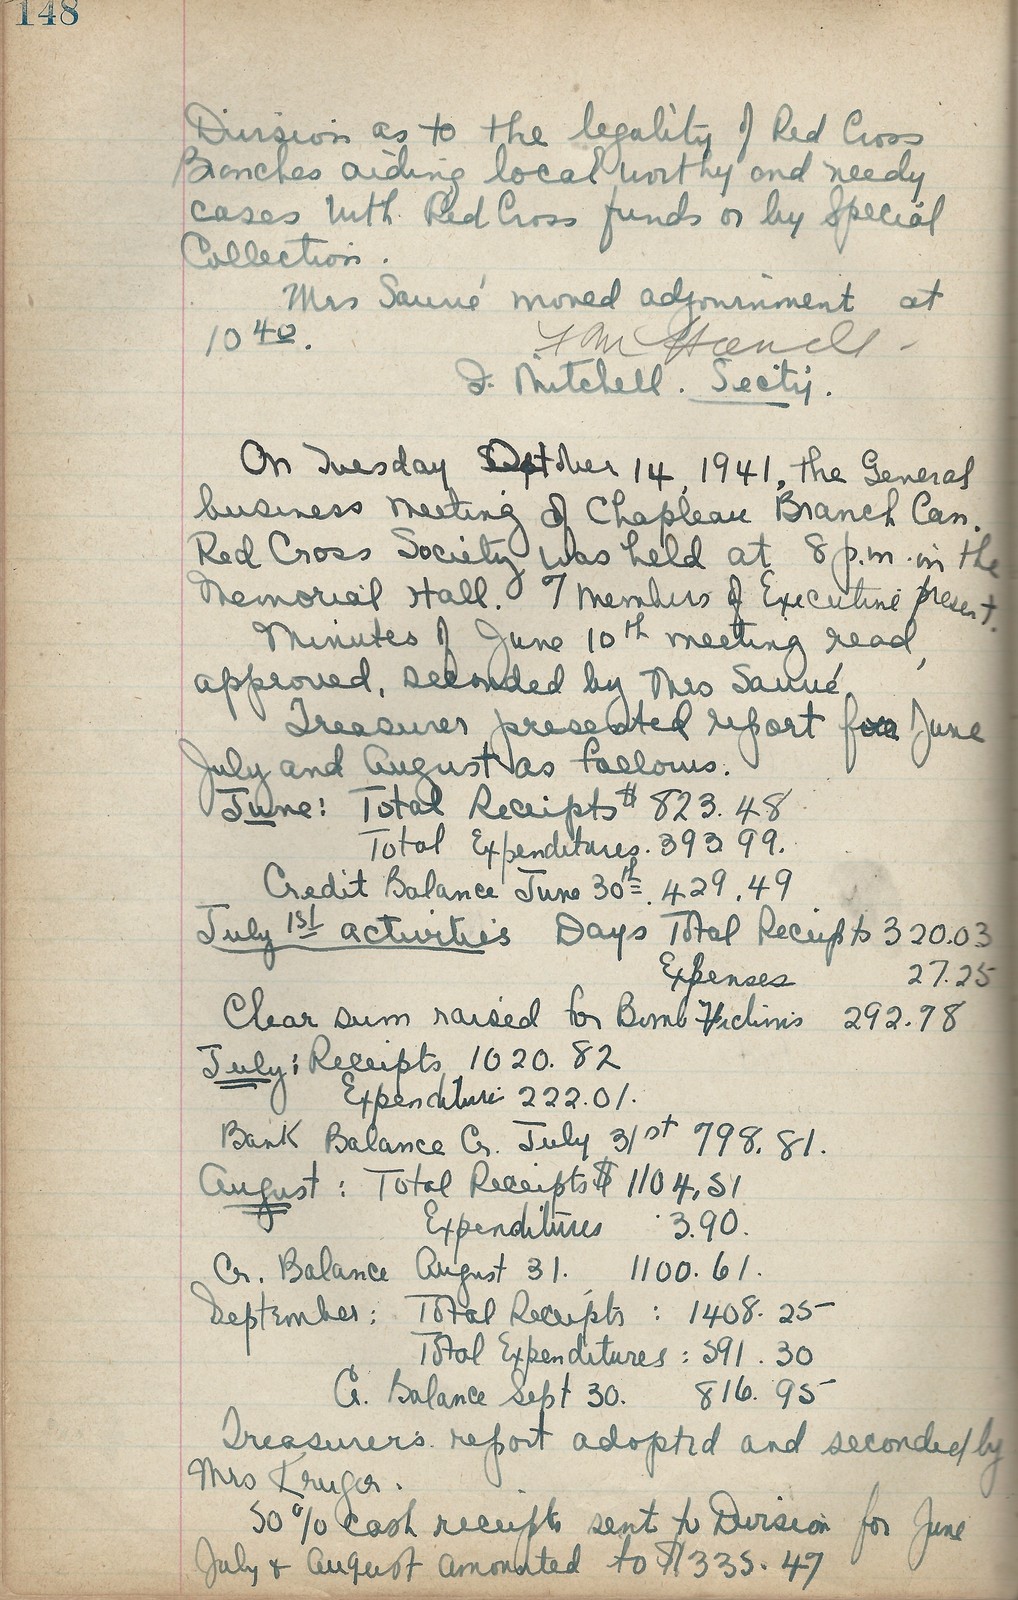 148
Division as to the legality of Red Cross
Branches aiding local worthy and needy
cases with Red Cross funds or by Special
Collection.
Mrs Sauvé moved adjournment at
10 40.
J. Mitchell. Sec'ty.
On Tuesday October 14, 1941, the General
business meeting of Chapleau Branch Can.
Red Cross Society was held at 8 p.m. in the
Memorial Hall. 7 members of Executive present.
Minutes of June 10th meeting read,
approved, seconded by Mrs Sauvé.
Treasurer presented report for June
July and August as follows.
June: Total Receipts $ 823.48
Total Expenditures. 393 99.
Credit Balance June 30th. 429.49
July 1st activities Days Total Receipts 320.03
Expenses 27.25
Clear sum raised for Bomb Victims 292.78
July: Receipts 1020.82
Expenditure 222.01.
Bank Balance Cr. July 31st 798.81.
August: Total Receipts $ 1104.51
Expenditures 3.90.
Cr. Balance August 31. 1100.61.
September: Total Receipts: 1408.25
Total Expenditures: 591.30
Cr. Balance Sept 30. 816.95
Treasurer's report adopted and seconded by
Mrs Kruger.
50% cash receipts sent to Division for June
July & August amounted to $1335.47